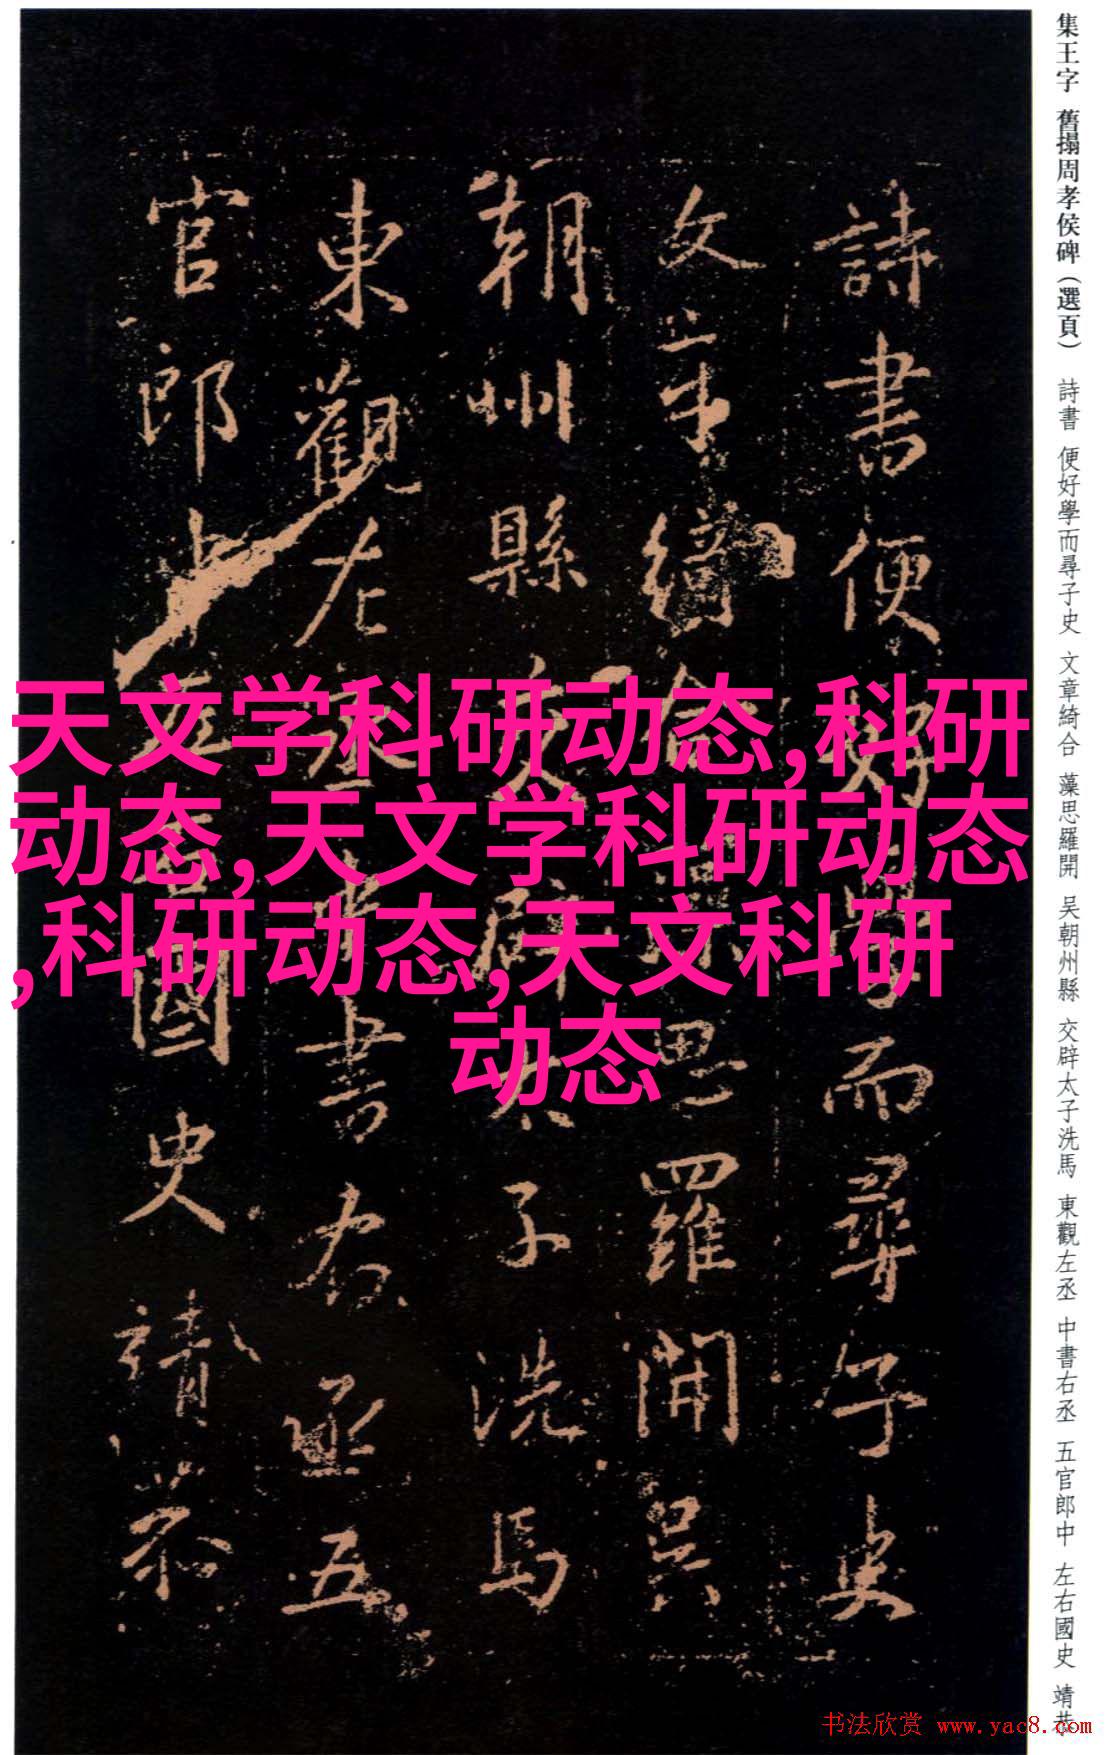 集王字 舊搨周孝侯碑（選頁） 詩書 便好學而尋子史 文章綺合 藻思羅開 吴朝州縣 交辟太子洗馬 東觀左丞 中書右丞 五官郎中 左右國史 靖恭
詩書便好學而尋子史
文章綺合藻思羅開吳
朝州縣交辟太子洗馬
東觀左丞中書右丞五
官郎中左右國史靖恭
天文学科研动态,科研
动态,天文学科研动态
,科研动态,天文科研
动态
书法欣赏 www.yac8.com